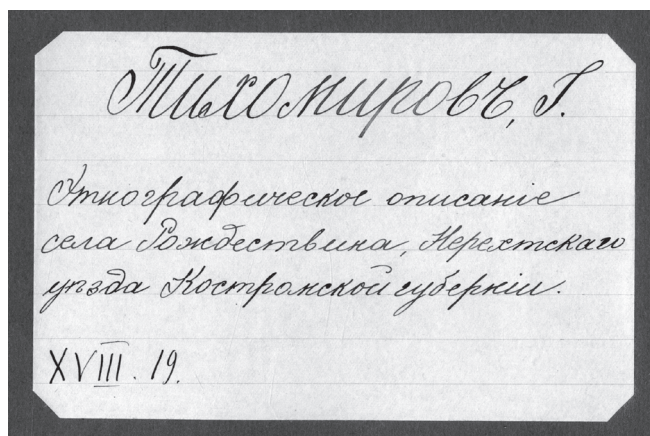 Тихомировъ, Г.
Этнографическое описаніе
села Рождествина, Нерехтскаго
уѣзда Костромской губерніи.
XVIII. 19.